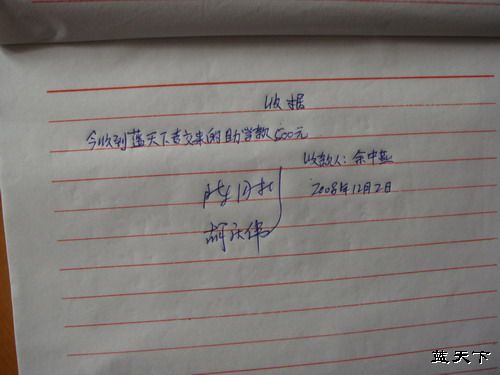 收据
今收到蓝天下李交来的助学款500元
收款人：余中燕
2008年12月2日
胡庆伟
蓝天下